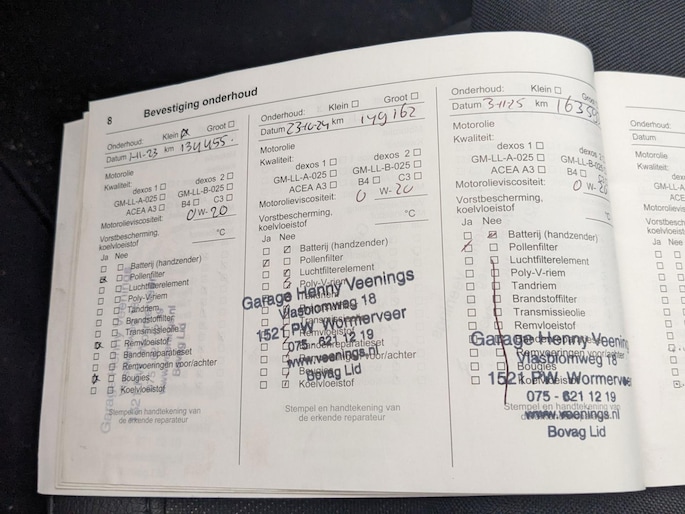 8 Bevestiging onderhoud
Onderhoud: Klein Groot
Datum 1-11-23 km 134455.
Motorolie
Kwaliteit:
dexos 1 dexos 2
GM-LL-A-025 GM-LL-B-025
ACEA A3 B4 C3
Motorolieviscositeit: 0 W- 20
Vorstbescherming,
koelvloeistof °C
Ja Nee
Batterij (handzender)
Pollenfilter
Luchtfilterelement
Poly-V-riem
Tandriem
Brandstoffilter
Transmissieolie
Remvloeistof
Bandenreparatieset
Remvoeringen voor/achter
Bougies
Koelvloeistof
Stempel en handtekening van
de erkende reparateur
Onderhoud: Klein Groot
Datum 23-10-24 km 149162
Motorolie
Kwaliteit:
dexos 1 dexos 2
GM-LL-A-025 GM-LL-B-025
ACEA A3 B4 C3
Motorolieviscositeit: 0 W- 20
Vorstbescherming,
koelvloeistof °C
Ja Nee
Batterij (handzender)
Pollenfilter
Luchtfilterelement
Poly-V-riem
Garage Henny Veenings
Vlasblomweg 18
1521 PW Wormerveer
075 - 621 12 19
www.veenings.nl
Bovag Lid
Transmissieolie
Remvloeistof
Bandenreparatieset
voor/achter
Bougies
Koelvloeistof
Stempel en handtekening van
de erkende reparateur
Onderhoud: Klein Groot
Datum 3-11-25 km
Motorolie
Kwaliteit:
dexos 1 dexos
GM-LL-A-025
ACEA A3 B4
Motorolieviscositeit: 0 W-
Vorstbescherming,
koelvloeistof °C
Ja Nee
Batterij (handzender)
Pollenfilter
Luchtfilterelement
Poly-V-riem
Tandriem
Brandstoffilter
Transmissieolie
Remvloeistof
Bandenreparatieset
Remvoeringen voor/achter
Bougies
Koelvloeistof
Garage Henny Veenings
Vlasblomweg 18
1521 PW Wormerveer
075 - 621 12 19
www.veenings.nl
Bovag Lid
Stempel en handtekening van
Onderhoud:
Datum
Motorolie
Kwaliteit:
Ja